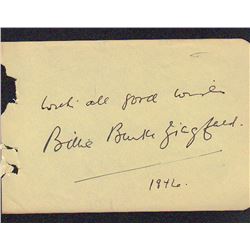 With all good wishes
Billie Burke Ziegfeld.
1946.